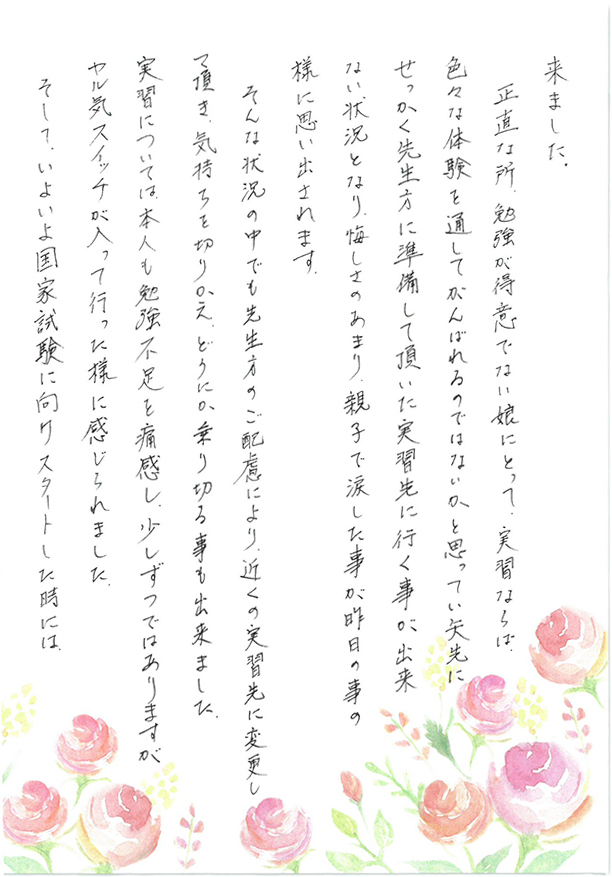 来ました。
正直な所、勉強が得意でない娘にとって、実習ならば、
色々な体験を通してがんばれるのではないか、と思ってい矢先に
せっかく先生方に準備して頂いた実習先に行く事が、出来
ない状況となり、悔しさのあまり、親子で涙した事が昨日の事の
様に思い出されます。
そんな状況の中でも先生方のご配慮により、近くの実習先に変更し
て頂き、気持ちを切りかえ、どうにか乗り切る事も出来ました。
実習については、本人も勉強不足を痛感し、少しずつではありますが
ヤル気スイッチが入って行った様に感じられました。
そして、いよいよ国家試験に向けスタートした時には、